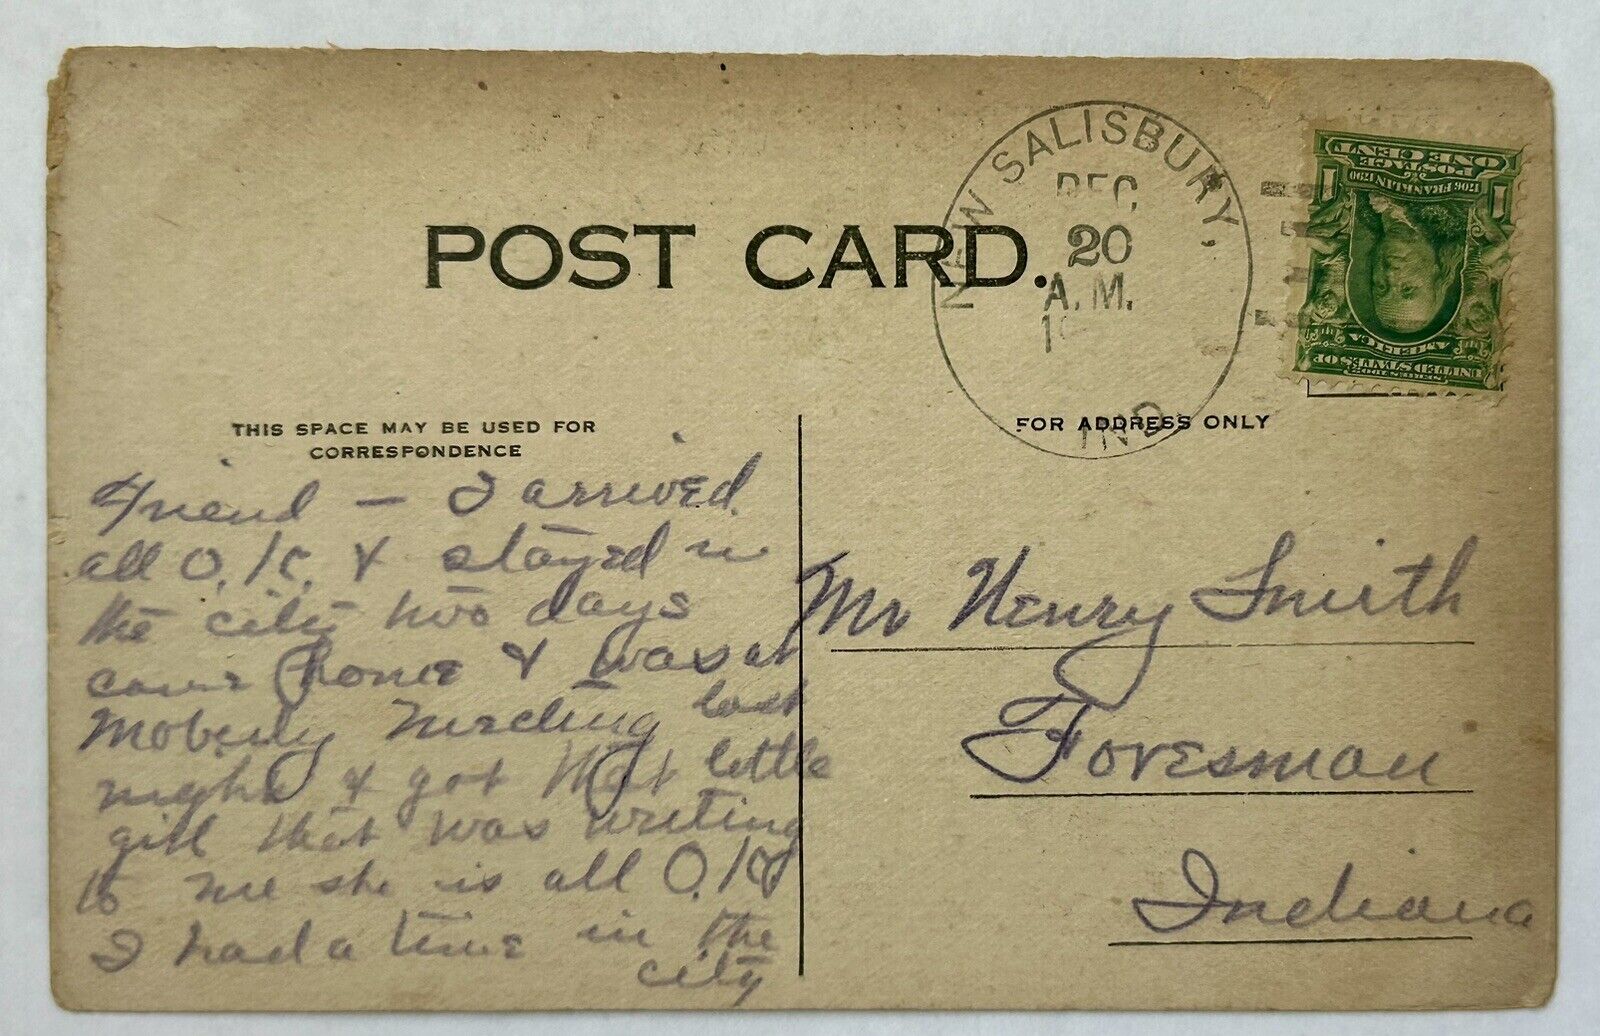 POST CARD.
NEW SALISBURY,
DEC
20
A.M.
1
IND
ONE CENT
POSTAGE
1706 FRANKLIN 1790
1 1
SERIES 1902
UNITED STATES OF
AMERICA
THIS SPACE MAY BE USED FOR
CORRESPONDENCE
FOR ADDRESS ONLY
Friend – I arrived
all O.K. & stayed in
the city two days
came home & was at
Moberly meeting last
night & got that little
girl that was writing
to me she is all O.K
I had a time in the
city
Mr Henry Smith
Foresman
Indiana